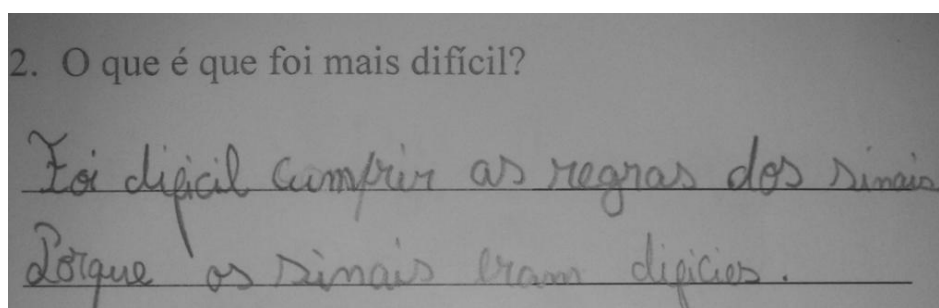 2. O que é que foi mais difícil?
Foi dificil cumprir as regras dos sinais
Porque os sinais eram dificies.